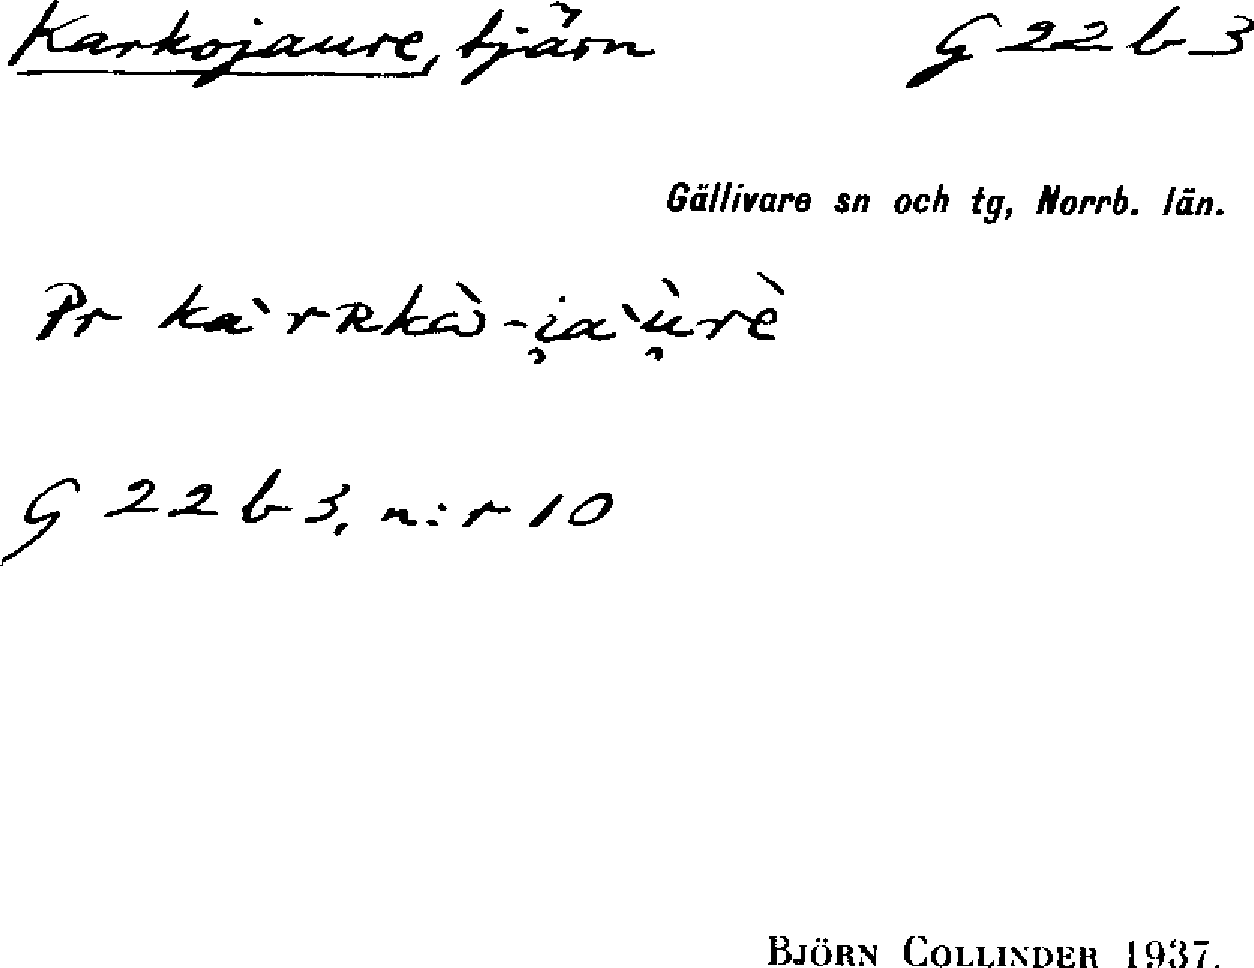 Karkojaure, tjärn G 22 b 3
Gällivare sn och tg, Norrb. län.
Pr
G 22 b 3, n:r 10
BJÖRN COLLINDER 1937.